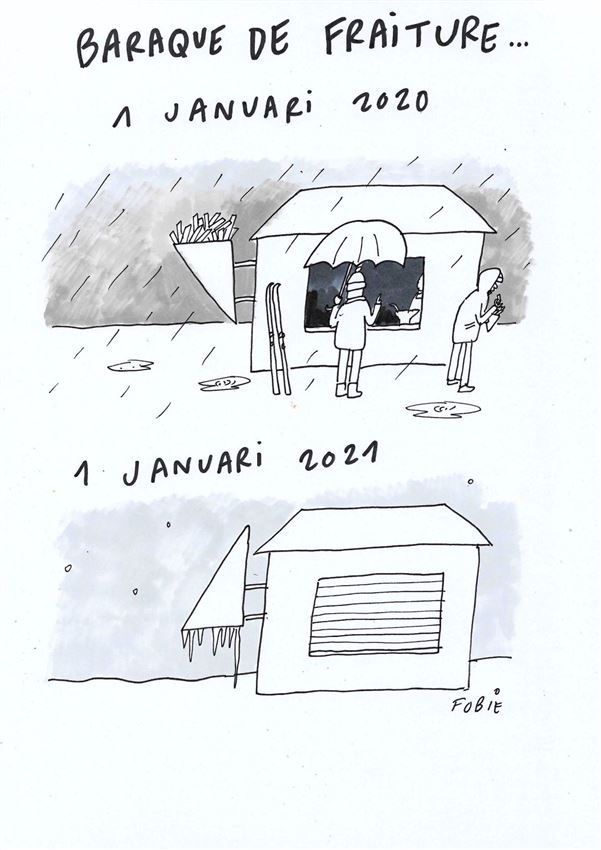 BARAQUE DE FRAiTURE...
1 JANUARi 2020
1 JANUARi 2021
FOBIE